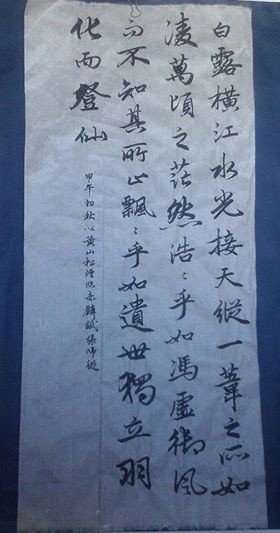 白露横江水光接天縱一葦之所如
凌萬頃之茫然浩〻乎如馮虛御风
而不知其所止飄〻乎如遺世獨立羽
化而登仙
甲午初秋以黄山松煙臨赤壁賦張師從